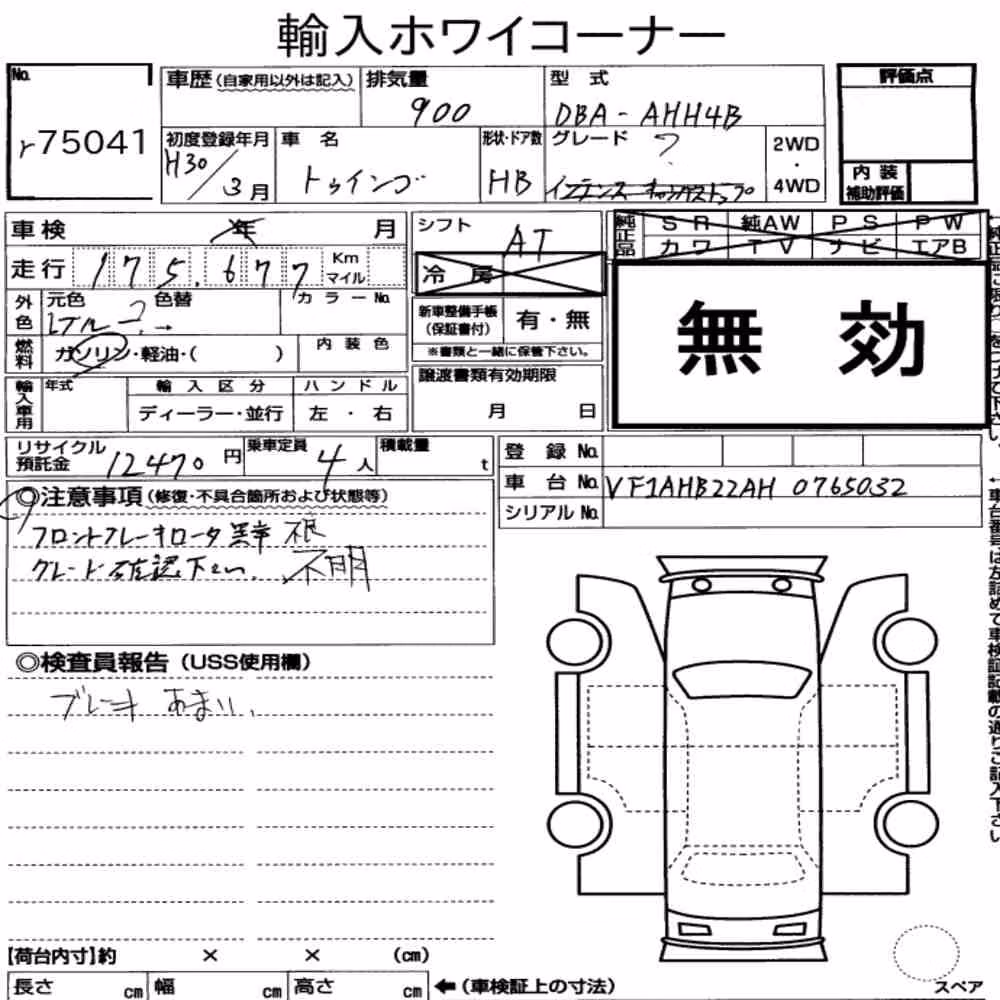 輸入ホワイコーナー
No.
r75041
車歴 (自家用以外は記入)
排気量
900
型 式
DBA-AHH4B
評価点
内装
補助評価
初度登録年月
H30/3月
車 名
トゥインゴ
形状・ドア数
HB
グレード
?
2WD
・
4WD
車検 年 月
シフト
AT
純正品
SR 純AW PS PW
カワ TV ナビ エアB
走行 175,677 Km
マイル
冷 房
無 効
外色
元色 色替 カラーNo.
新車整備手帳
(保証書付)
有・無
※書類と一緒に保管下さい。
燃料
ガソリン・軽油・( )
内装色
輸入車用
年式
輸入区分
ディーラー・並行
ハンドル
左・右
譲渡書類有効期限
月 日
リサイクル
預託金
12470円
乗車定員
4人
積載量
t
登録 No.
車台 No. VF1AHB22AH 0765032
シリアル No.
◎注意事項 (修復・不具合箇所および状態等)
フロントブレーキロータ 異常 不良
グレード確認下さい. 不明
◎検査員報告 (USS使用欄)
ブレーキ あまい.
【荷台内寸】約 × × (cm)
長さ cm 幅 cm 高さ cm
←(車検証上の寸法)
スペア